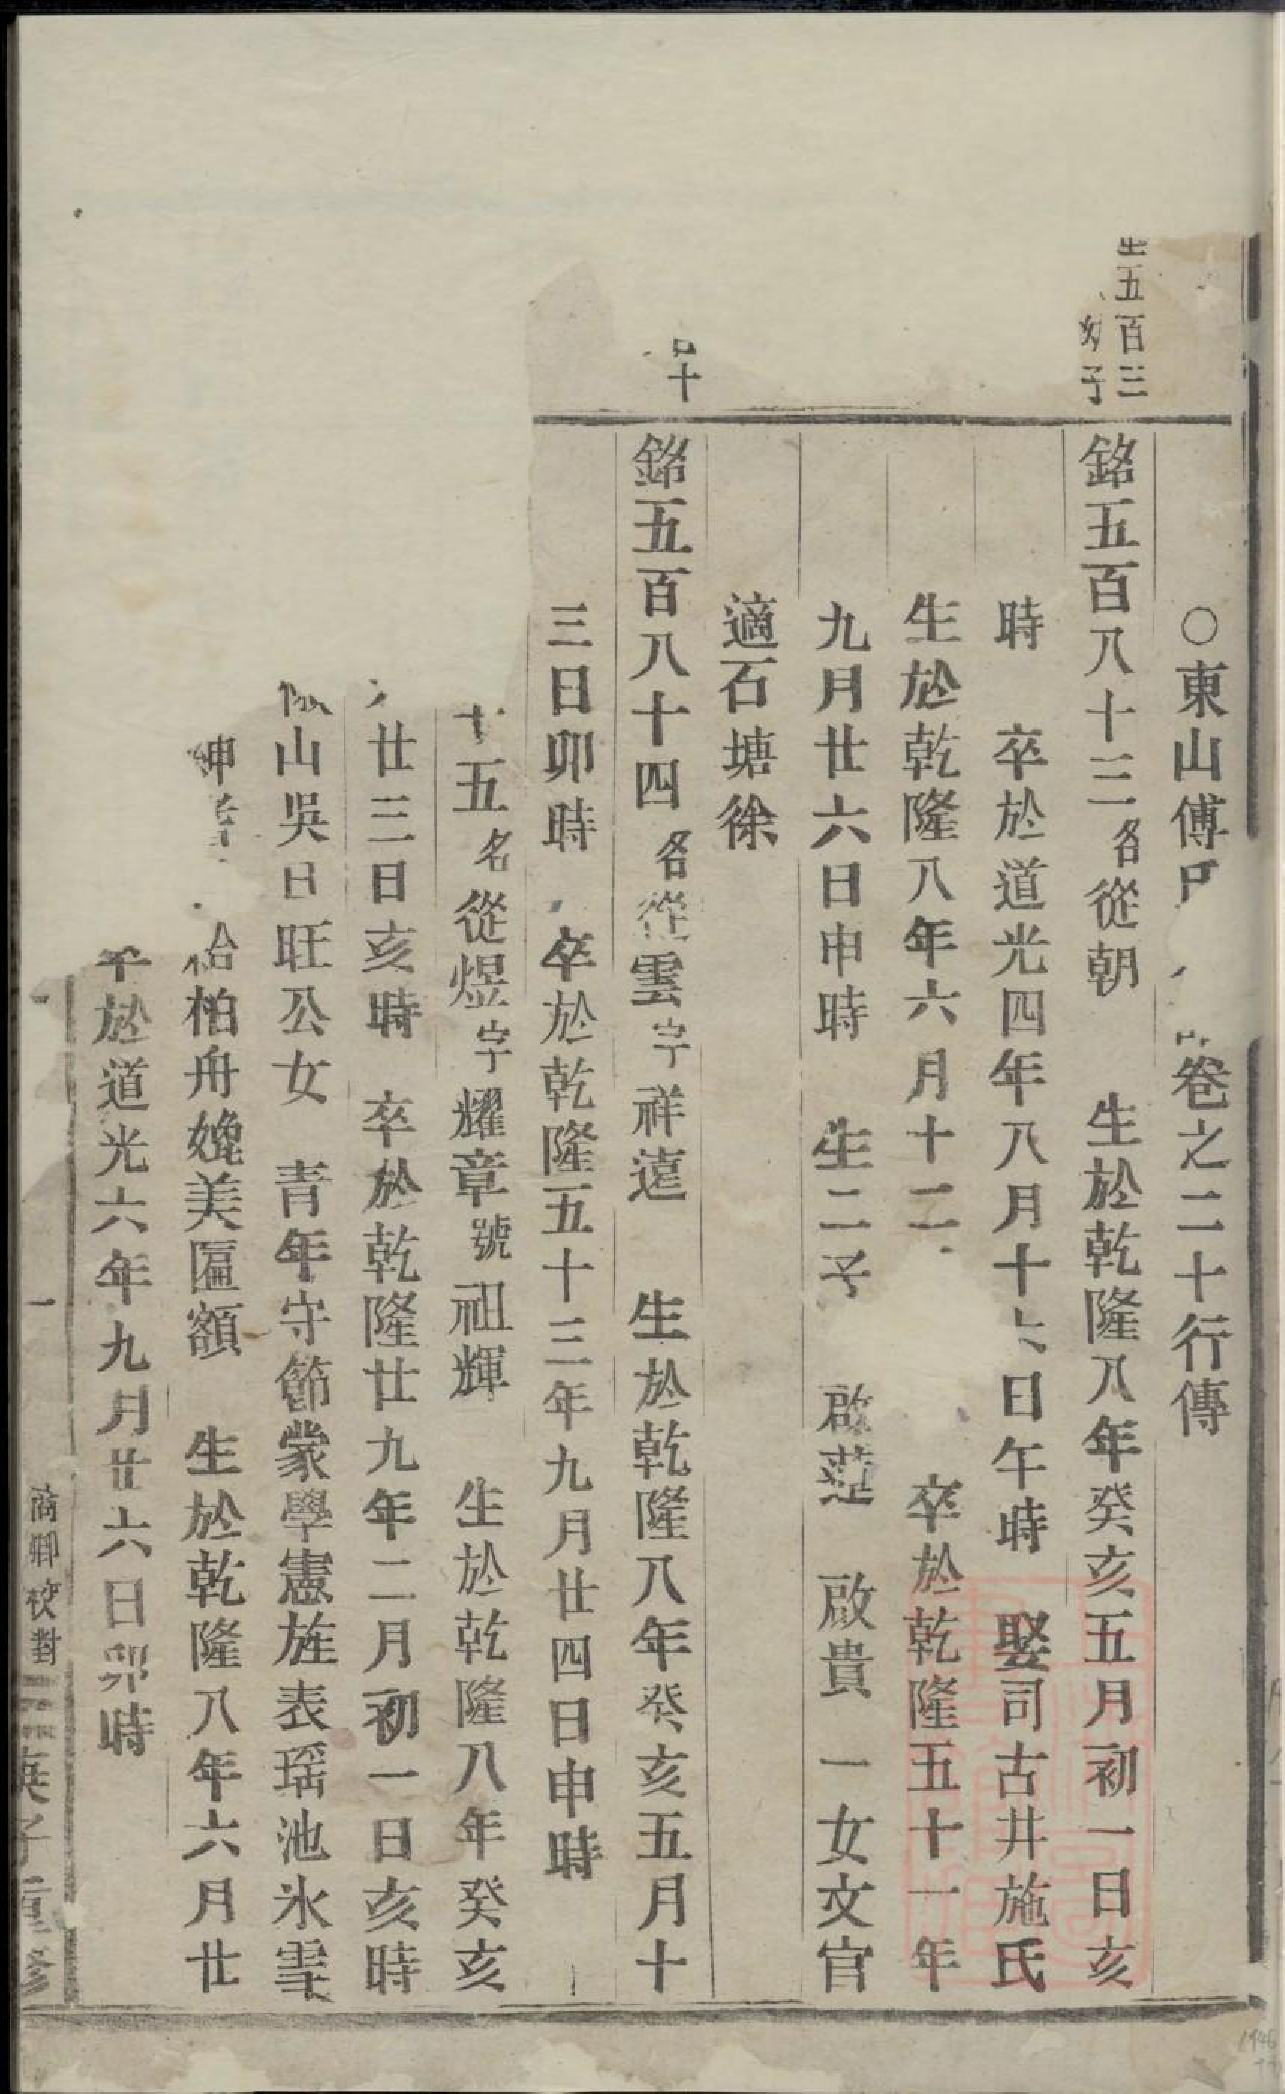 ○東山傅氏 卷之二十行傳
五百三
子
銘五百八十三名從朝 生於乾隆八年癸亥五月初一日亥
時 卒於道光四年八月十六日午時 娶司古井施氏
生於乾隆八年六月十二 卒於乾隆五十一年
九月廿六日申時 生二子 啟 啟貴 一女文官
適石塘徐
十
銘五百八十四名從雲字祥遠 生於乾隆八年癸亥五月十
三日卯時 卒於乾隆五十三年九月廿四日申時
十五名從煜字耀章號祖輝 生於乾隆八年癸亥
廿三日亥時 卒於乾隆廿九年二月初一日亥時
山吳日旺公女 青年守節蒙學憲旌表瑶池氷雪
紳 給柏舟媲美匾額 生於乾隆八年六月廿
卒於道光六年九月廿六日卯時
一
商卿校對
重修